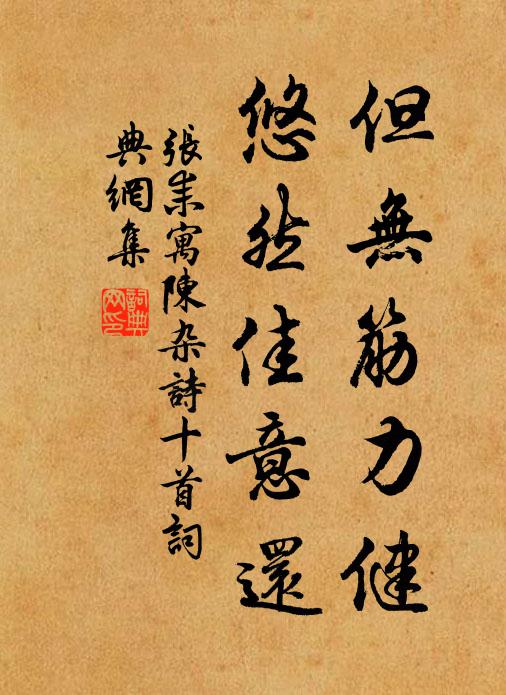 但無筋力健
悠然佳意還
張耒寓陳杂詩十首詞
典網集
詞典網印